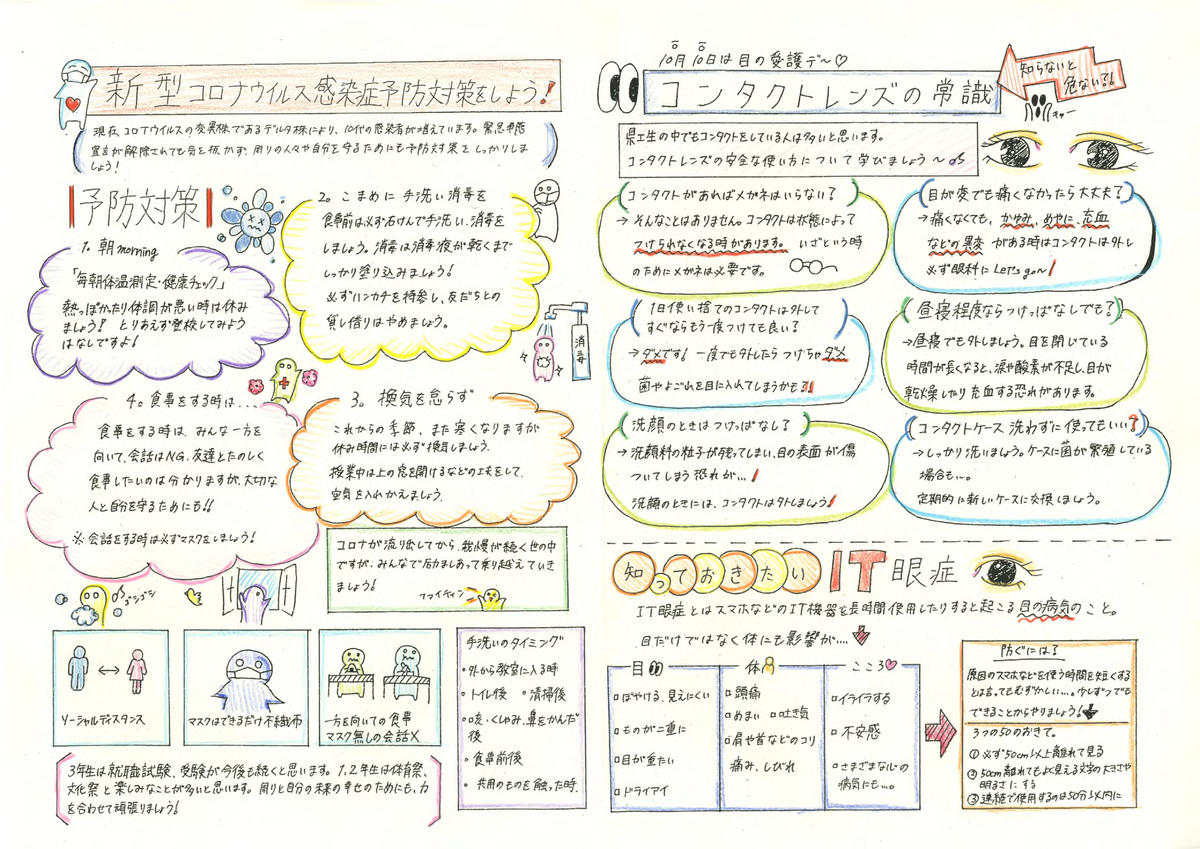 新型コロナウイルス感染症予防対策をしよう!
現在、コロナウイルスの変異株であるデルタ株により、10代の感染者が増えています。緊急事態
宣言が解除されても気を抜かず、周りの人々や自分を守るためにも予防対策をしっかりしま
しょう!
予防対策
1. 朝morning
「毎朝体温測定・健康チェック」
熱っぽかったり体調が悪い時は休み
ましょう! とりあえず登校してみよう
はなしですよ!
2. こまめに手洗い消毒を
食事前は必ず石けんで手洗い、消毒を
しましょう。消毒は消毒液が乾くまで
しっかり塗り込みましょう!
必ずハンカチを持参し、友だちとの
貸し借りはやめましょう。
消毒
4. 食事をする時は...
食事をする時は、みんな一方を
向いて、会話はNG。友達とたのしく
食事したいのは分かりますが、大切な
人と自分を守るためにも!!
※会話をする時は必ずマスクをしましょう!
3. 換気を怠らず
これからの季節、また寒くなりますが
休み時間には必ず換気しましょう。
授業中は上の窓を開けるなどの工夫をして、
空気を入れかえましょう。
コロナが流行出してから、我慢が続く世の中
ですが、みんなで励ましあって乗り越えていき
ましょう!
ファイティン
ゴシゴシ
ソーシャルディスタンス
マスクはできるだけ不織布
一方を向いての食事
マスク無しの会話×
手洗いのタイミング
・外から教室に入る時
・トイレ後 ・清掃後
・咳・くしゃみ、鼻をかんだ
後
・食事前後
・共用のものを触った時。
3年生は就職試験、受験が今後も続くと思います。1、2年生は体育祭、
文化祭と楽しみなことが多いと思います。周りと自分の未来の幸せのためにも、力
を合わせて頑張りましょう!
10月10日は目の愛護デ〜♡
コンタクトレンズの常識
知らないと
危ない?!
キャー
県工生の中でもコンタクトをしている人は多いと思います。
コンタクトレンズの安全な使い方について学びましょう〜♪
コンタクトがあればメガネはいらない?
→そんなことはありません。コンタクトは状態によって
つけられなくなる時があります。 いざという時
のためにメガネは必要です。
目が変でも痛くなかったら大丈夫?
→痛くなくても、かゆみ、めやに、充血
などの異変がある時はコンタクトは外し
必ず眼科にLet's go〜!
1日使い捨てのコンタクトは外して
すぐならもう1度つけても良い?
→ダメです! 一度でも外したらつけちゃダメ
菌やよごれを目に入れてしまうかも?!
昼寝程度ならつけっぱなしでも?
→昼寝でも外しましょう。目を閉じている
時間が長くなると、涙や酸素が不足し、目が
乾燥したり充血する恐れがあります。
洗顔のときはつけっぱなし?
→洗顔料の粒子が残ってしまい、目の表面が傷
ついてしまう恐れが...!
洗顔のときには、コンタクトは外しましょう!
コンタクトケース洗わずに使ってもいい?
→しっかり洗いましょう。ケースに菌が繁殖している
場合も...。
定期的に新しいケースに交換しましょう。
知っておきたいIT眼症
IT眼症とはスマホなどのIT機器を長時間使用したりすると起こる目の病気のこと。
目だけではなく体にも影響が....
目
□ぼやける、見えにくい
□ものが二重に
□目が重たい
□ドライアイ
体
□頭痛
□めまい □吐き気
□肩や首などのこり
痛み、しびれ
こころ♡
□イライラする
□不安感
□さまざまな心の
病気にも...。
防ぐには?
原因のスマホなどを使う時間を短くする
とは言ってもむずかしい...。少しずつでも
できることからやりましょう!
3つの50のおきて。
①必ず50cm以上離れて見る
②50cm離れてもよく見える文字の大きさや
明るさにする
③連続で使用するのは50分以内に